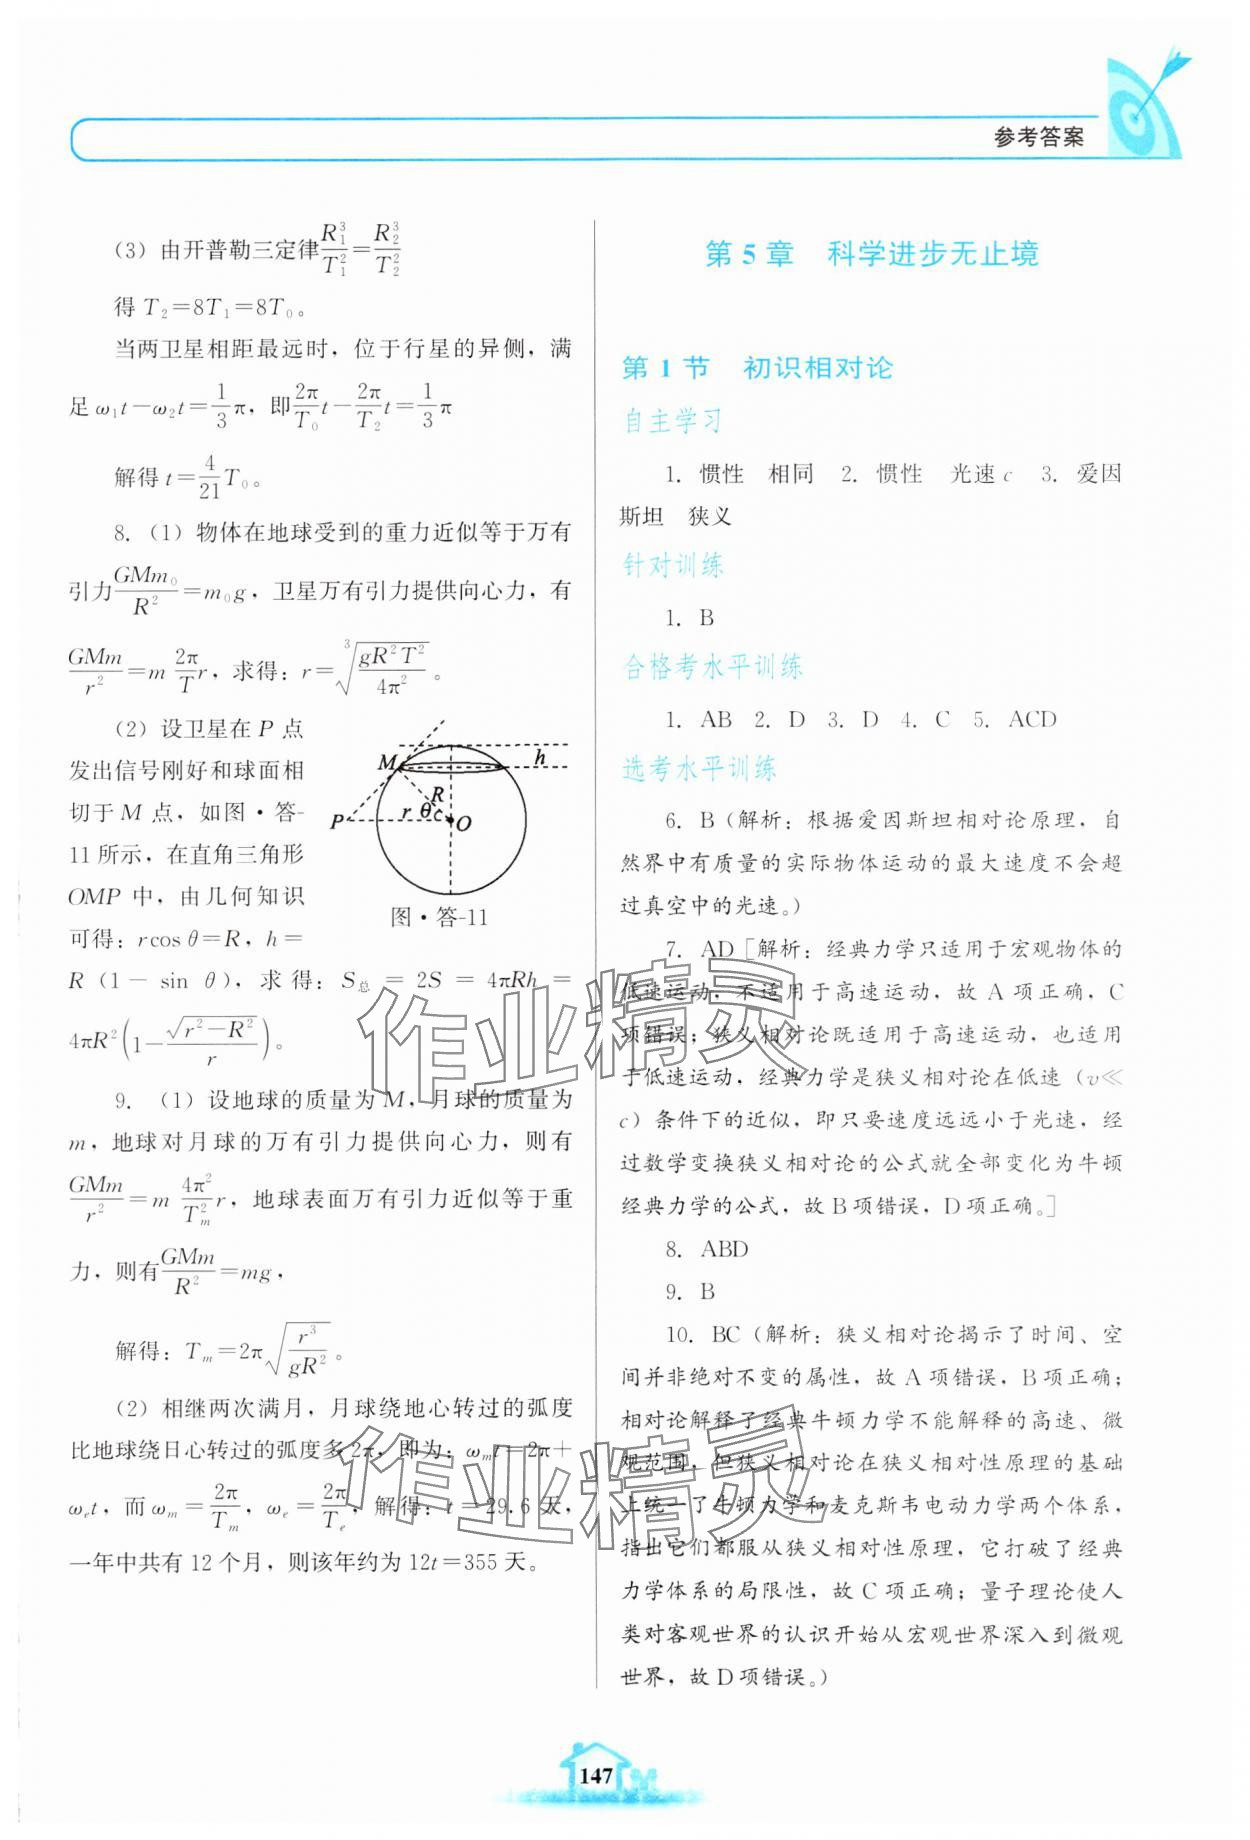 参考答案
(3) 由开普勒三定律 R₁³/T₁²=R₂³/T₂²
得 T₂=8T₁=8T₀。
当两卫星相距最远时，位于行星的异侧，满
足 ω₁t−ω₂t=1/3π，即2π/T₀t−2π/T₂t=1/3π
解得 t=4/21T₀。
8. (1) 物体在地球受到的重力近似等于万有
引力GMm₀/R²=m₀g，卫星万有引力提供向心力，有
GMm/r²=m 2π/T r，求得：r=³√(gR²T²/4π²)。
(2) 设卫星在 P 点
发出信号刚好和球面相
切于 M 点，如图·答-
11 所示，在直角三角形
OMP 中，由几何知识
可得：rcos θ=R，h=
R(1− sin θ)，求得：S总=2S=4πRh=
4πR²(1−√(r²−R²)/r)。
M
h
R
P
r
θ
O
图·答-11
9. (1) 设地球的质量为 M，月球的质量为
m，地球对月球的万有引力提供向心力，则有
GMm/r²=m 4π²/Tₘ² r，地球表面万有引力近似等于重
力，则有GMm/R²=mg，
解得：Tₘ=2π√(r³/gR²)。
(2) 相继两次满月，月球绕地心转过的弧度
比地球绕日心转过的弧度多 2π，即为：ωₘt=2π+
ωₑt，而 ωₘ=2π/Tₘ，ωₑ=2π/Tₑ，解得：t=29.6 天，
一年中共有 12 个月，则该年约为 12t=355 天。
第 5 章 科学进步无止境
第 1 节 初识相对论
自主学习
1. 惯性 相同 2. 惯性 光速 c 3. 爱因
斯坦 狭义
针对训练
1. B
合格考水平训练
1. AB 2. D 3. D 4. C 5. ACD
选考水平训练
6. B(解析：根据爱因斯坦相对论原理，自
然界中有质量的实际物体运动的最大速度不会超
过真空中的光速。)
7. AD[解析：经典力学只适用于宏观物体的
低速运动，不适用于高速运动，故 A 项正确，C
项错误；狭义相对论既适用于高速运动，也适用
于低速运动，经典力学是狭义相对论在低速（v≪
c）条件下的近似，即只要速度远远小于光速，经
过数学变换狭义相对论的公式就全部变化为牛顿
经典力学的公式，故 B 项错误，D 项正确。]
8. ABD
9. B
10. BC(解析：狭义相对论揭示了时间、空
间并非绝对不变的属性，故 A 项错误，B 项正确；
相对论解释了经典牛顿力学不能解释的高速、微
观范围，但狭义相对论在狭义相对性原理的基础
上统一了牛顿力学和麦克斯韦电动力学两个体系，
指出它们都服从狭义相对性原理，它打破了经典
力学体系的局限性，故 C 项正确；量子理论使人
类对客观世界的认识开始从宏观世界深入到微观
世界，故 D 项错误。)
作业精灵
作业精灵
147